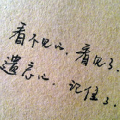 看不见的，看见了．
遗忘的，记住了．